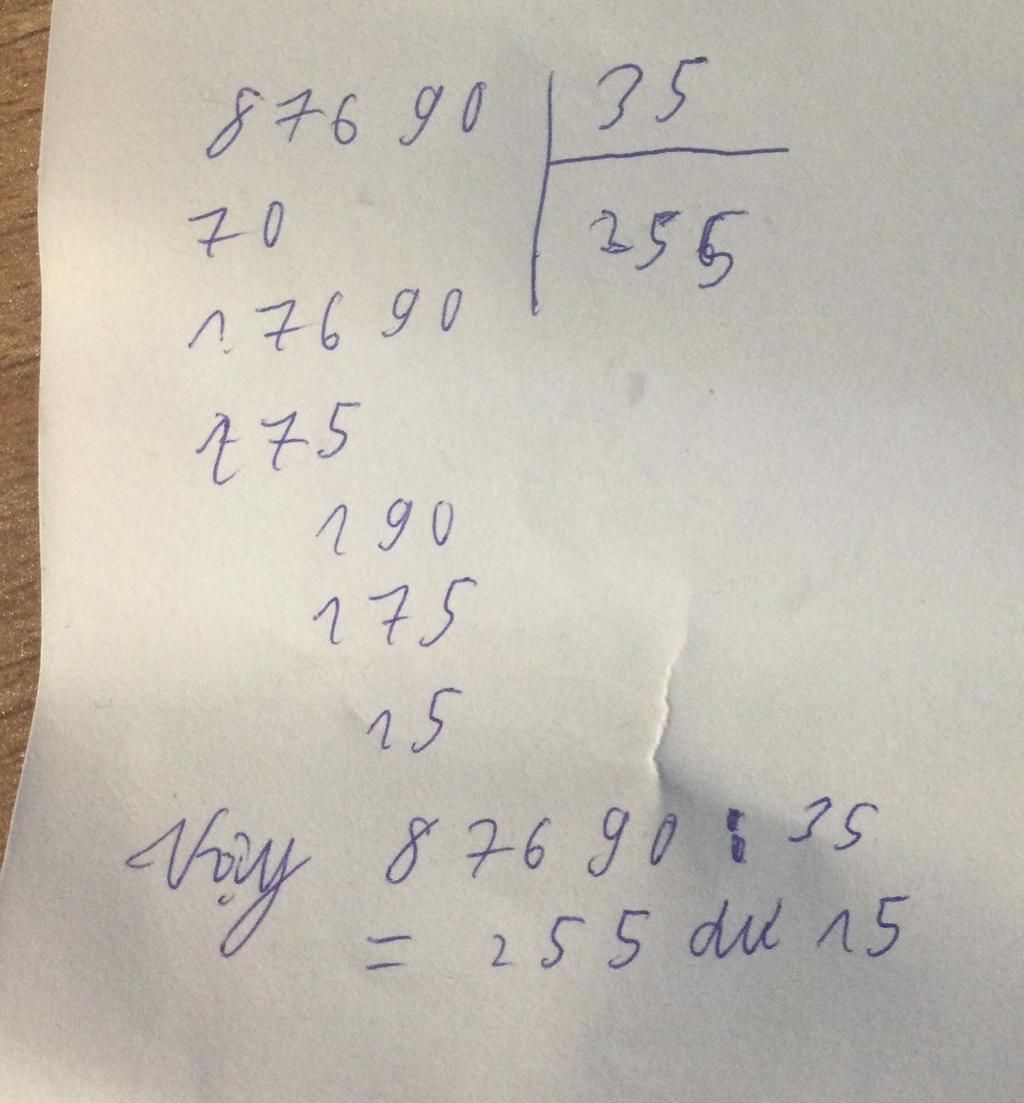 87690 35
70 255
17690
175
190
175
15
Vậy 87690 : 35
= 255 dư 15